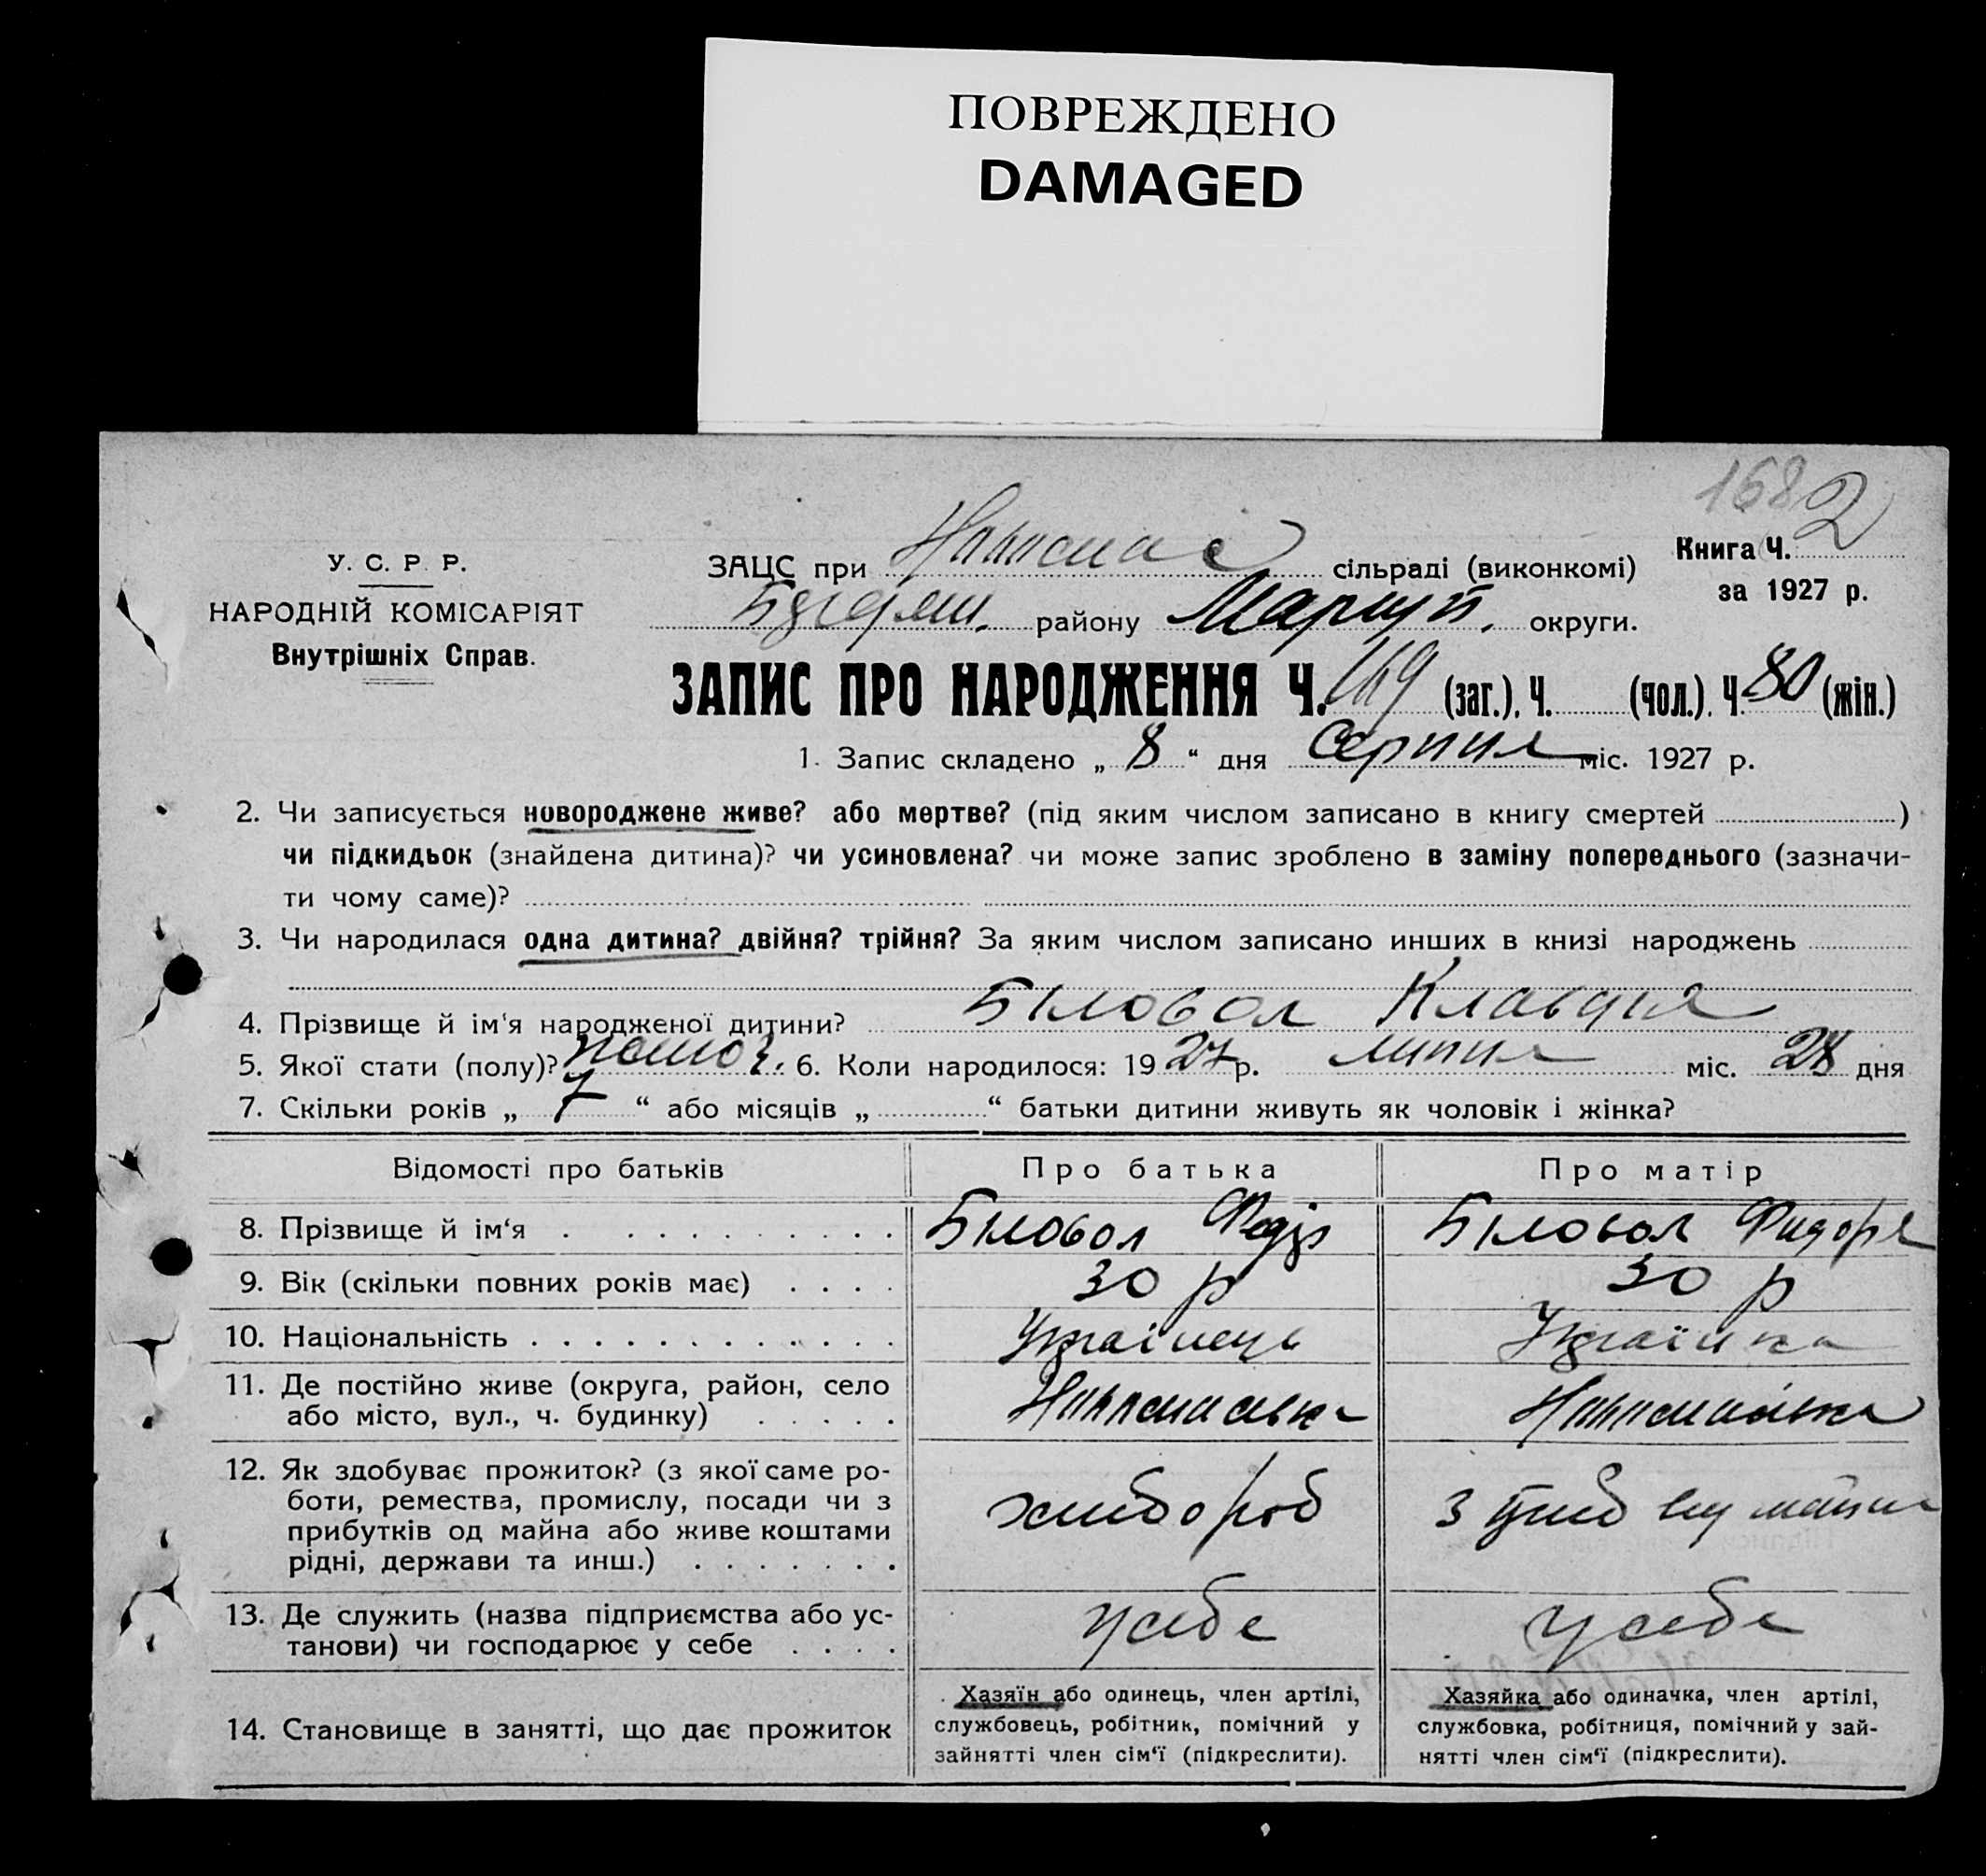 ПОВРЕЖДЕНО
DAMAGED
168 2
У. С. Р. Р.
НАРОДНІЙ КОМІСАРІЯТ
Внутрішніх Справ.
ЗАЦС при сільраді (виконкомі)
Книга Ч.
за 1927 р.
району Маріуп. округи.
ЗАПИС ПРО НАРОДЖЕННЯ Ч. 169 (заг.), Ч. (чол.), Ч. 80 (жін.)
1. Запис складено „ 8 “ дня Серпня міс. 1927 р.
2. Чи записується новороджене живе? або мертве? (під яким числом записано в книгу смертей )
чи підкидьок (знайдена дитина)? чи усиновлена? чи може запис зроблено в заміну попереднього (зазначи-
ти чому саме)?
3. Чи народилася одна дитина? двійня? трійня? За яким числом записано инших в книзі народжень
4. Прізвище й ім‘я народженої дитини? Біловол Клавдія
5. Якої стати (полу)? 6. Коли народилося: 1927 р. липня міс. 28 дня
7. Скільки років „ 7 “ або місяців „ “ батьки дитини живуть як чоловік і жінка?
Відомості про батьків Про батька Про матір
8. Прізвище й ім‘я Біловол Федір Біловол Фидора
9. Вік (скільки повних років має) 30 р 30 р
10. Національність Українець Українка
11. Де постійно живе (округа, район, село
або місто, вул., ч. будинку)
12. Як здобуває прожиток? (з якої саме ро-
боти, ремества, промислу, посади чи з
прибутків од майна або живе коштами
рідні, держави та инш.) хлібороб
13. Де служить (назва підприємства або ус-
танови) чи господарює у себе у себе у себе
14. Становище в занятті, що дає прожиток
Хазяїн або одинець, член артілі,
службовець, робітник, помічний у
зайнятті член сім‘ї (підкреслити).
Хазяйка або одиначка, член артілі,
службовка, робітниця, помічний у зай-
нятті член сім‘ї (підкреслити).